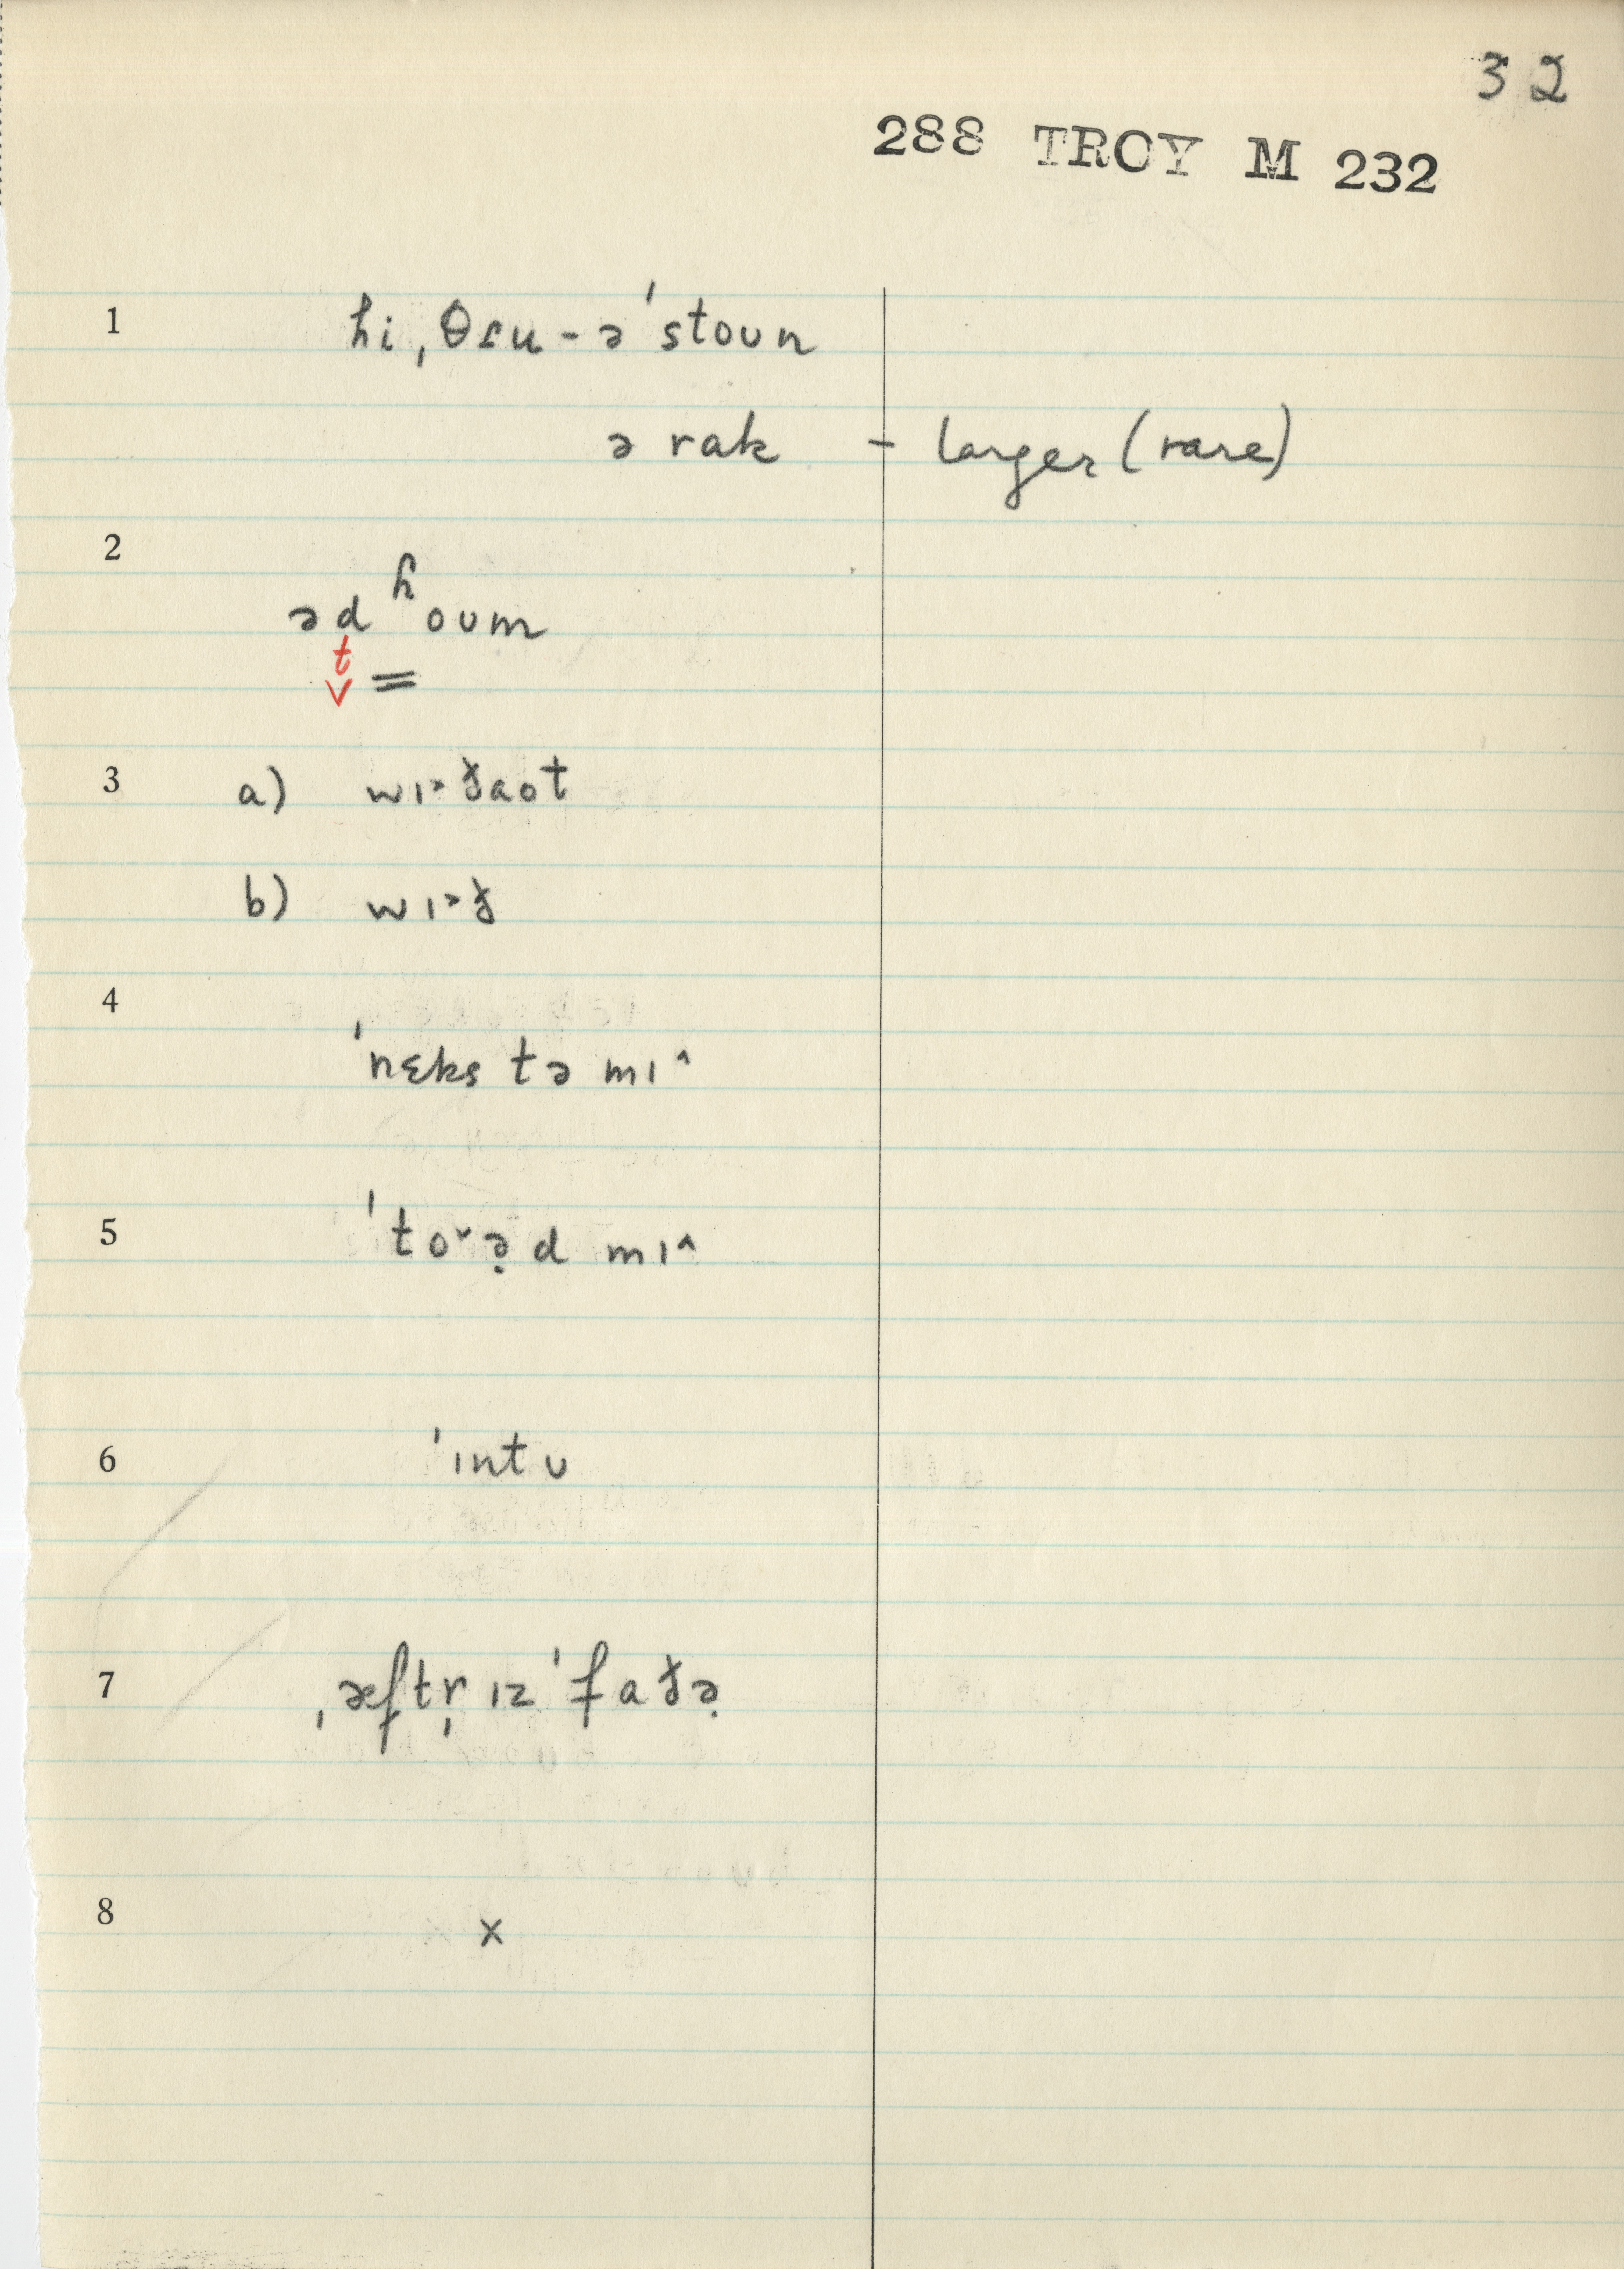 32
288 TROY M 232
1 hi ˌθɾu - ə ˈstoun
ə rak - larger (rare)
2 əd ʰoʊm
t
v =
3 a) wɪ˃ðaot
b) wɪ˃ð
4 ˈnɛks tə mɪ^
5 ˈto˅ə̣d mɪ^
6 ˈɪntʊ
7 ˌæftr̩ ɪz ˈfaðə̣
8 x